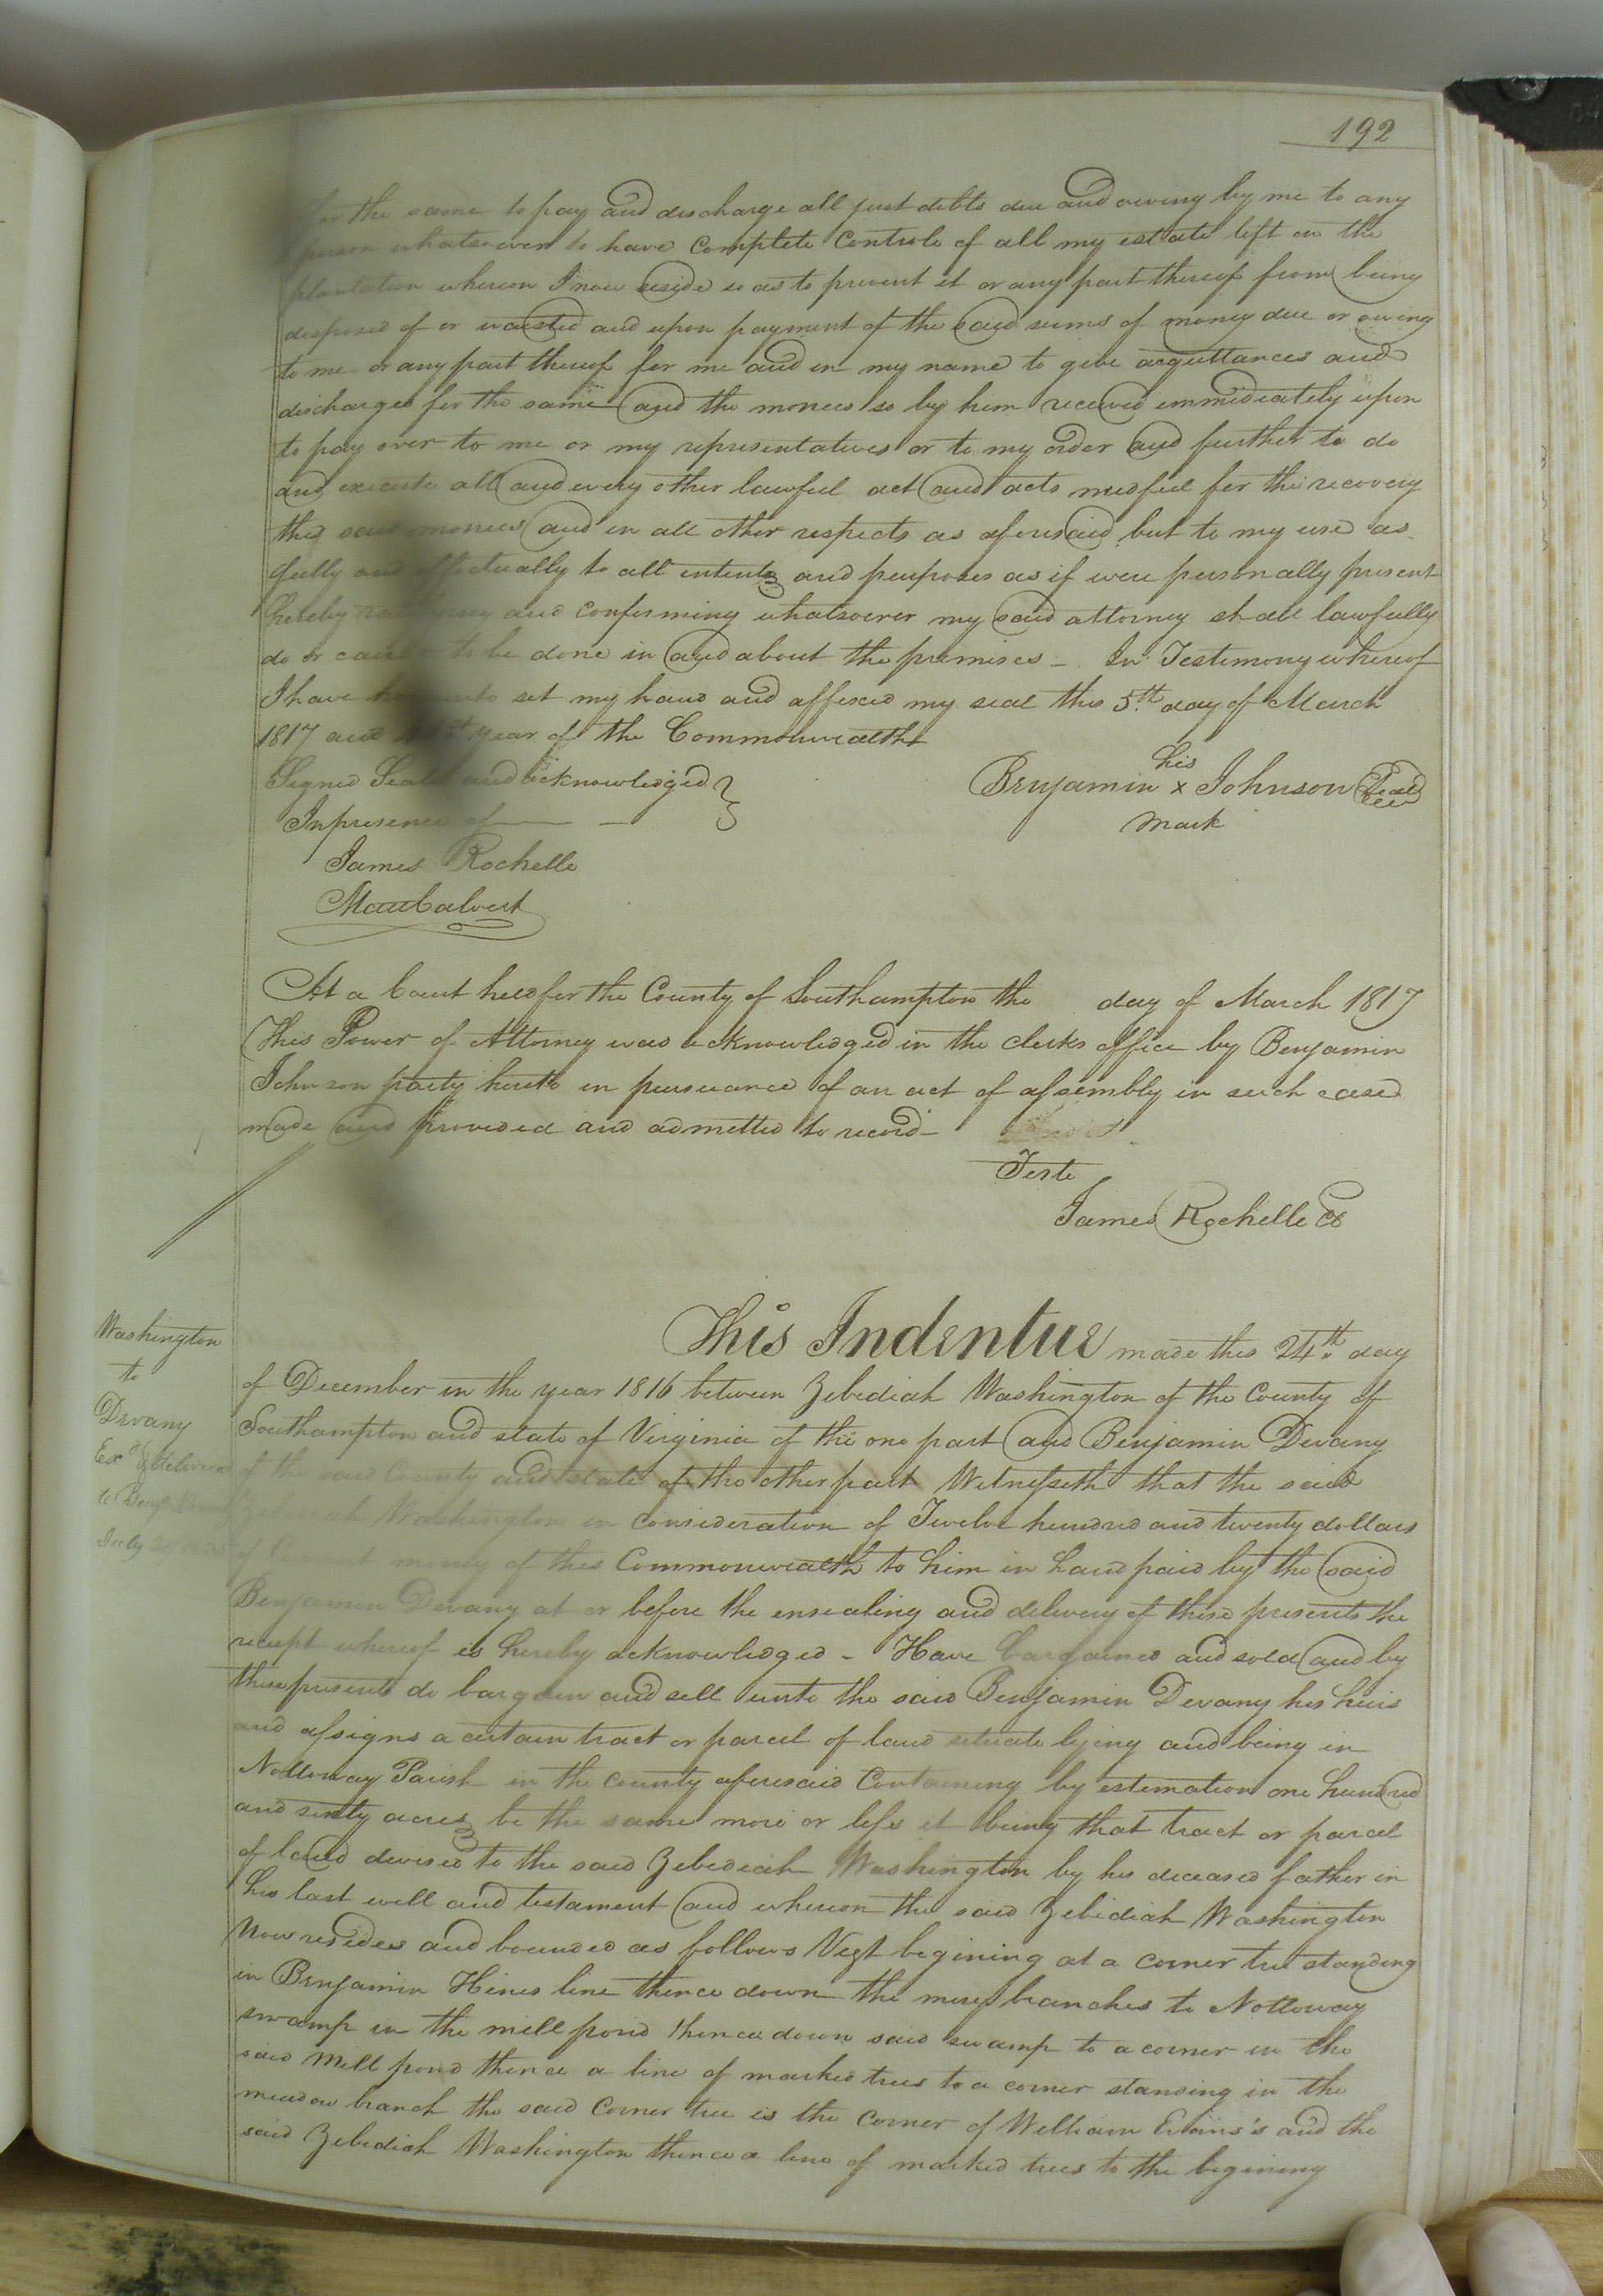 192
for the same to pay and discharge all just debts due and owing by me to any
person whatsoever to have complete Controle of all my estate left on the
plantation whereon I now reside so as to prevent it or any part thereof from being
disposed of or waisted and upon payment of the said sums of money due or owing
to me or any part thereof for me and in my name to give acquittances and
discharges for the same and the monies so by him received immediately upon
to pay over to me or my representatives or to my order and further to do
and execute all and every other lawful act and acts needful for the recovery
the said monies and in all other respects as aforesaid but to my use as
fully and effectually to all intents and purposes as if were personally present
hereby and confirming whatsoever my said attorney shall lawfully
do or cause to be done in and about the premises - In Testimony whereof
I have set my hand and affixed my seal this 5th day of March
1817 and year of the Commonwealth
Signed Seal and acknowledged
In presence of
his
Benjamin x Johnson Seal
mark
James Rochelle
At a Court held for the County of Southampton the day of March 1817
This Power of Attorney was acknowledged in the clerks office by Benjamin
Johnson party hereto in persuance of an act of assembly in such cased
made and provided and admitted to record -
Teste
James Rochelle
Washington
to
Devany
Ex
July
This Indenture made this 24th day
of December in the year 1816 between Zebediah Washington of the County of
Southampton and state of Virginia of the one part and Benjamin Devany
of the said County and state of the other part Witnesseth that the said
Washington in Consideration of Twelve hundred and twenty dollars
of Current money of this Commonwealth to him in hand paid by the said
Benjamin Devany at or before the ensealing and delivery of these presents the
receipt whereof is hereby acknowledged - Have bargained and sold and by
these presents do bargain and sell unto the said Benjamin Devany his heirs
and assigns a certain tract or parcel of land situate lying and being in
Nottoway Parish in the County aforesaid Containing by estimation one hundred
and sixty acres be the same more or less it being that tract or parcel
of land devised to the said Zebediah Washington by his deceased father in
his last will and testament and whereon the said Zebidiah Washington
Now resides and bounded as follows Vizt begining at a corner tree standing
in Benjamin Hines line thence down the branches to Nottoway
swamp in the mill pond thence down said swamp to a corner in the
said Mill pond thence a line of marked trees to a corner standing in the
meadow branch the said Corner tree is the Corner of William Evans's and the
said Zebediah Washington thence a line of marked trees to the begining